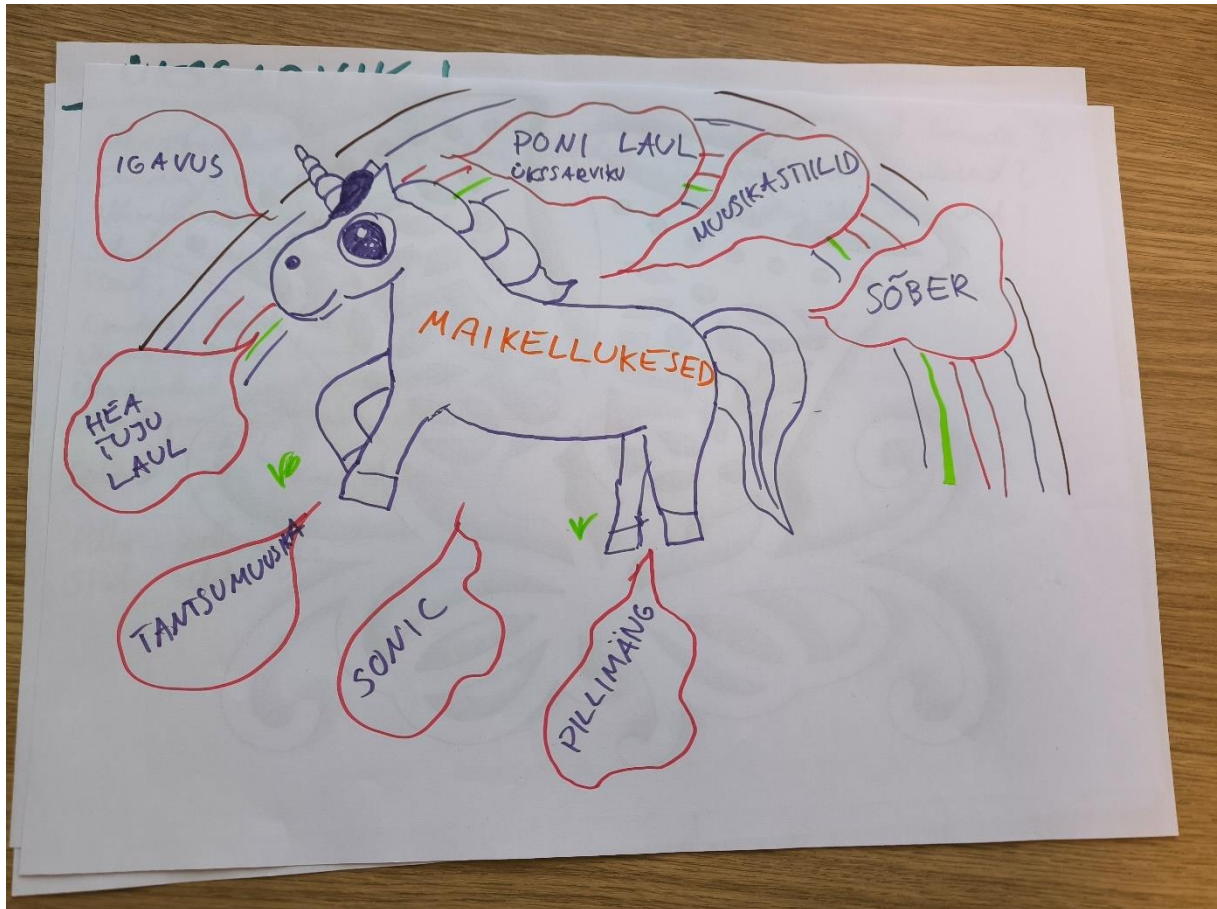 IGAVUS
PONI LAUL
ÜKSSARVIKU
MUUSIKASTIILID
SÕBER
MAIKELLUKESED
HEA
TUJU
LAUL
TANTSUMUUSKA
SONIC
PILLIMÄNG